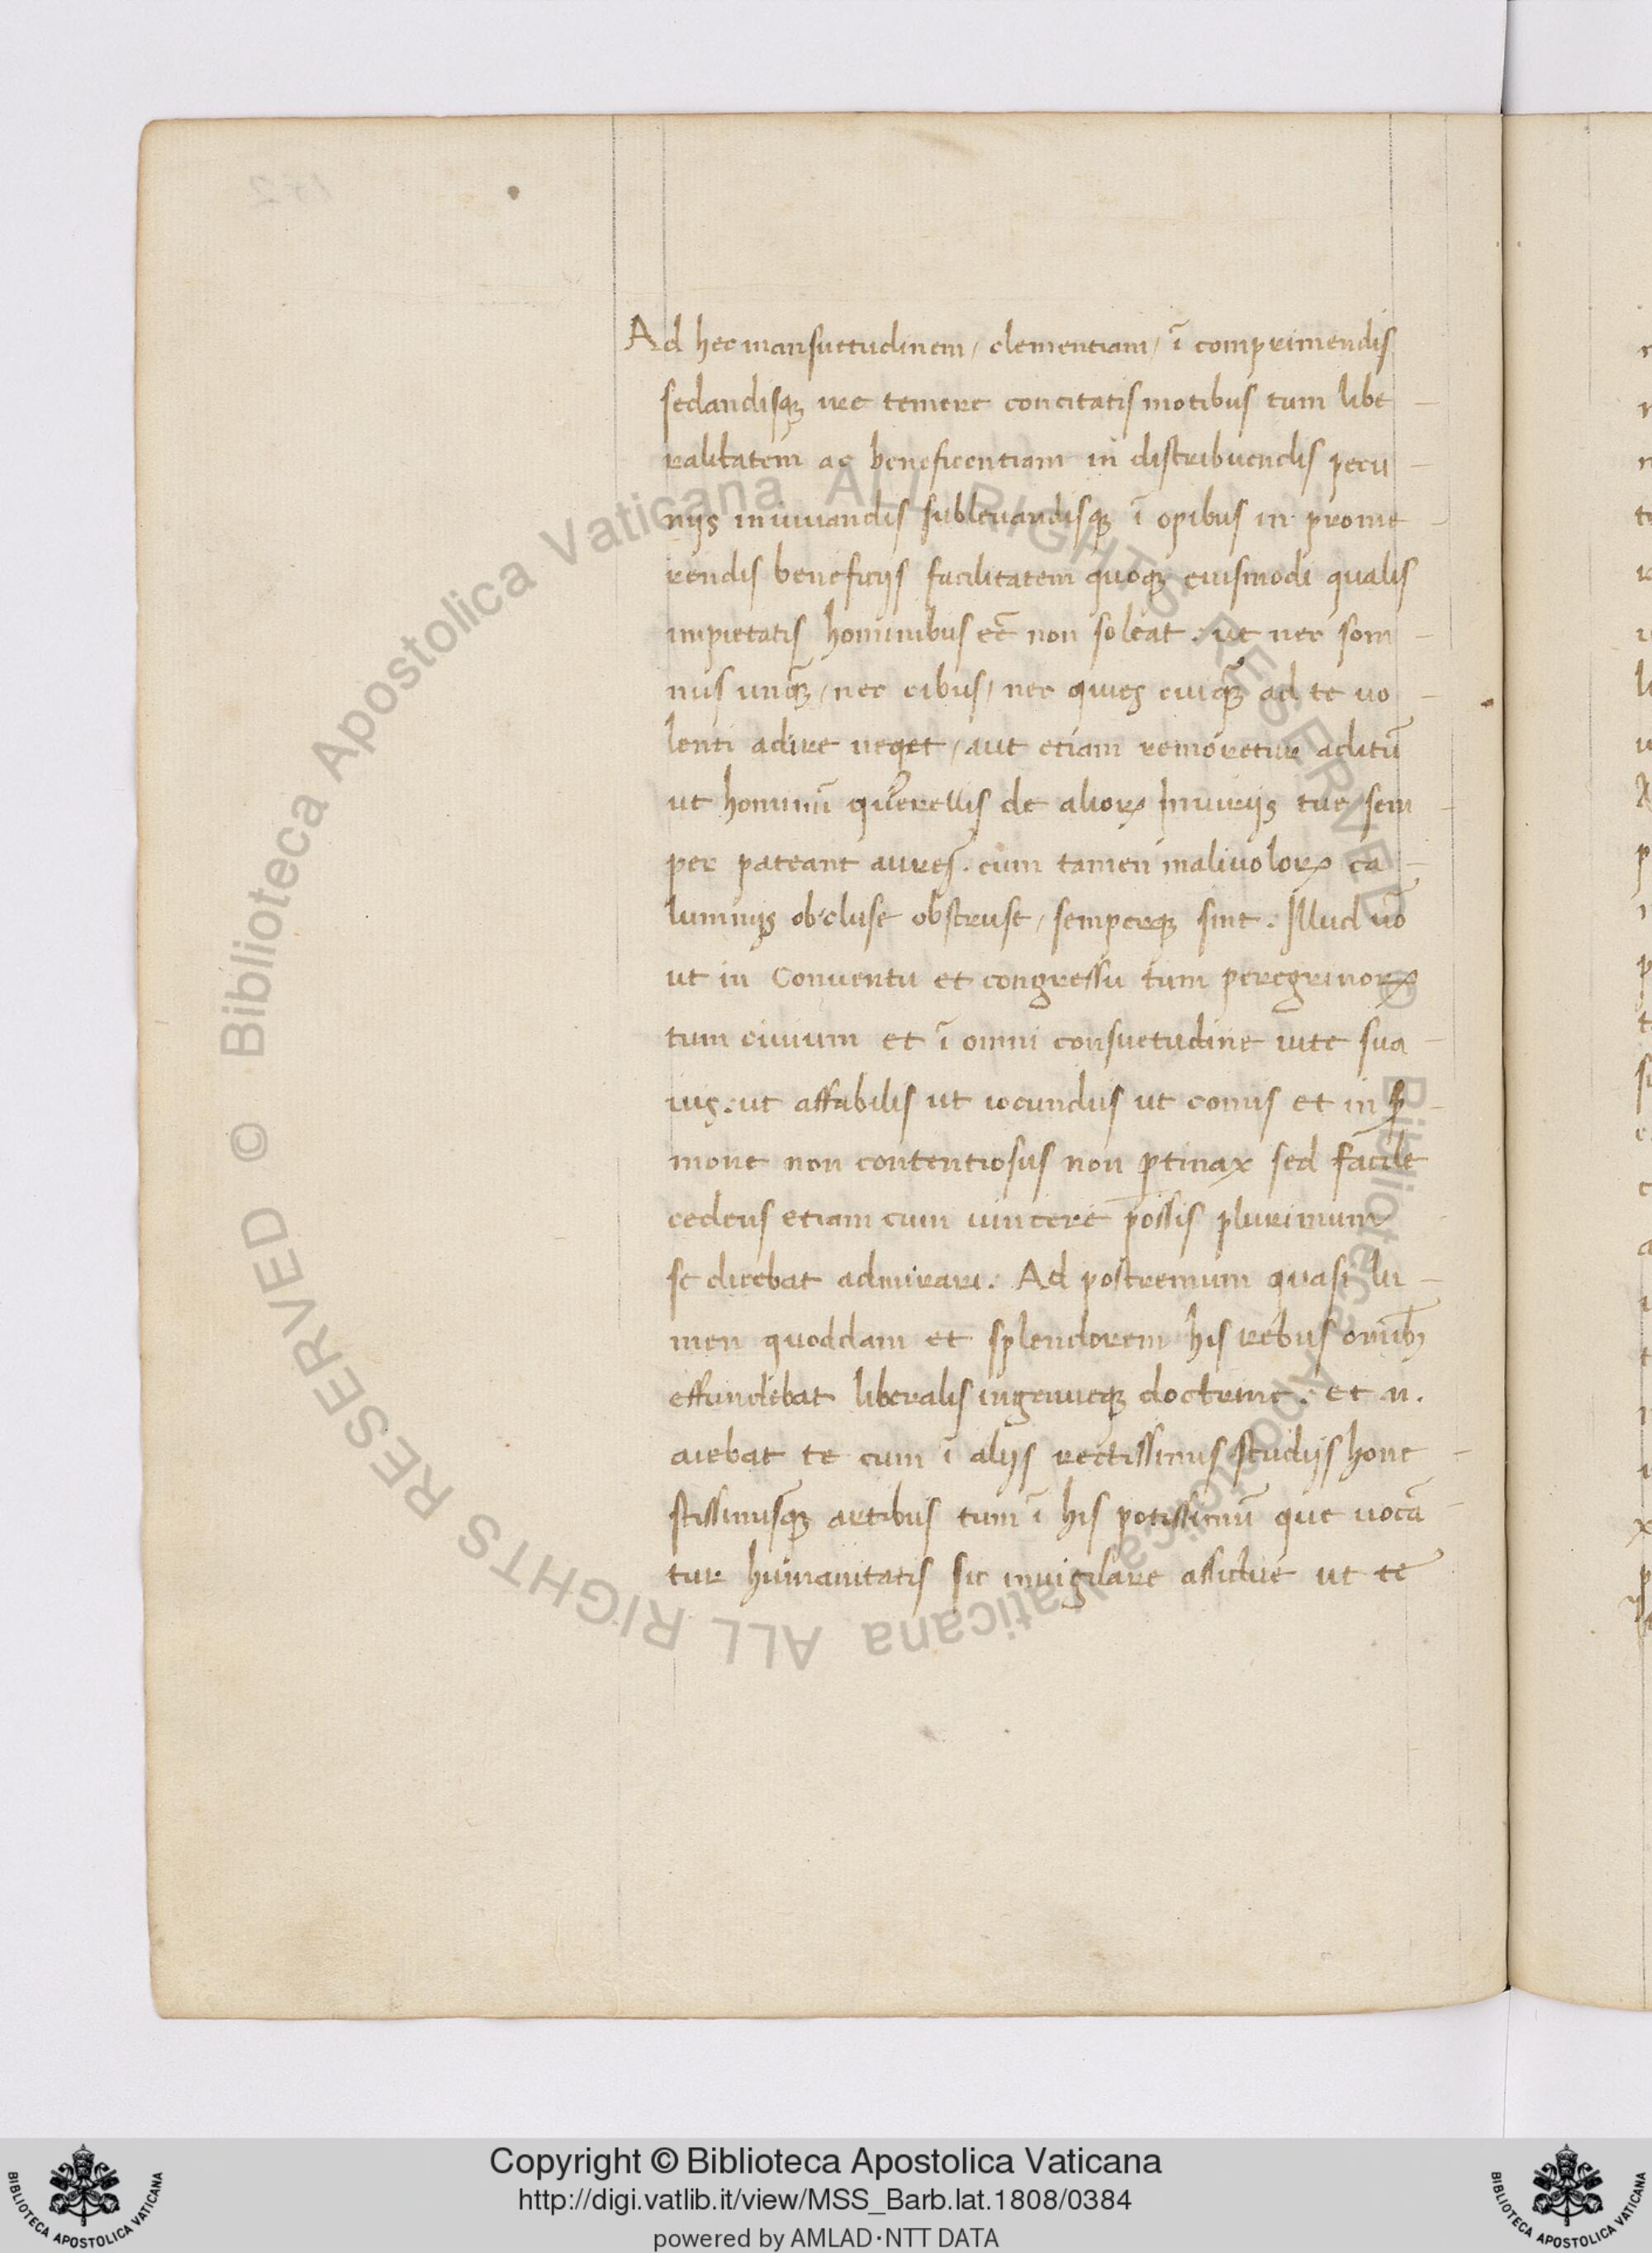 Ad hec mansuetudinem / clementiam / ĩ comprimendis
sedandisqꝫ ire temere concitatis motibus tum libe
ralitatem ac beneficentiam in distribuendis pecu
nijs in iuuandis subleuandisqꝫ ĩ opibus in prome
rendis beneficijs facilitatem quoqꝫ eiusmodi qualis
impietatis hominibus eẽ non soleat. ut nec som
nus unq̃ꝫ / nec cibus / nec quies cuiq̃ꝫ ad te uo
lenti adire neget / aut etiam remoretur aditũ
ut hominũ querellis de alioꝝ Iniurijs tue sem
per pateant aures. cum tamen maliuoloꝝ ca
lumnijs obcluse obstruse / semperqꝫ sint. Illud uõ
ut in Conuentu et congressu tum peregrinoꝝ
tum ciuium et ĩ omni consuetudine uite sua
uis. ut affabilis ut iocundus ut comis et in s̃
mone non contentiosus non ꝑtinax sed facile
cedens etiam cum uincere possis plurimum
se dicebat admirari. Ad postremum quasi lu
men quoddam et splendorem his rebus omĩbꝫ
effundebat liberalis ingenueqꝫ doctrine. et n.
aiebat te cum ĩ alijs rectissimis studijs hone
stissimisqꝫ artibus tum ĩ his potissimũ que uocã
tur humanitatis sic inuigilare assidue ut te
Copyright © Biblioteca Apostolica Vaticana
http://digi.vatlib.it/view/MSS_Barb.lat.1808/0384
powered by AMLAD·NTT DATA
BIBLIOTECA APOSTOLICA VATICANA
BIBLIOTECA APOSTOLICA VATICANA
© Biblioteca Apostolica Vaticana ALL RIGHTS RESERVED
© Biblioteca Apostolica Vaticana ALL RIGHTS RESERVED